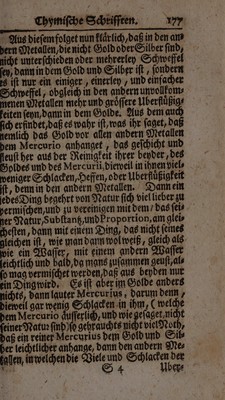 Chymische Schrifften. 177
Aus diesem folget nun klärlich, daß in den an-
dern Metallen, die nicht Gold oder Silber sind,
nicht unterschieden oder mehrerley Schweffel
sey, dann in dem Gold und Silber ist, sondern
es ist nur ein einiger, einerley, und einfacher
Schweffel, obgleich in den andern unvollkom-
menen Metallen mehr und grössere Uberflüssig-
keiten seyn, dann in dem Golde. Aus dem auch
sich erfindet, daß es wahr ist, was ihr saget, daß
nemlich das Gold vor allen andern Metallen
dem Mercurio anhanget, das geschicht und
fleust her aus der Reinigkeit ihrer beyder, des
Goldes und des Mercurii, dieweil in ihnen viel-
weniger Schlacken, Heffen, oder Uberflüßigkeit
ist, denn in den andern Metallen. Dann ein
jedes Ding begehrt von Natur sich viel lieber zu
vermischen, und zu vereinigen mit dem das sei-
ner Natur, Substantz, und Proportion, am glei-
chesten, dann mit einem Ding, das nicht seines
gleichen ist, wie man dann wol weiß, gleich als
wie ein Wasser, mit einem andern Wasser
leichtlich und bald, da mans zusammen geust, al-
so mag vermischet werden, daß aus beyden nur
ein Ding wird. Es ist aber im Golde anders
nichts, dann lauter Mercurius, darum denn,
dieweil gar wenig Schlacken in ihm, (welche
dem Mercurio äusserlich, und wie gesaget, nicht
seiner Natur sind) so gebrauchts nicht viel Noth,
daß ein reiner Mercurius dem Gold und Sil-
ber leichtlicher anhange, dann den andern Me-
tallen, in welchen die Viele und Schlacken der
S 4 Uber-